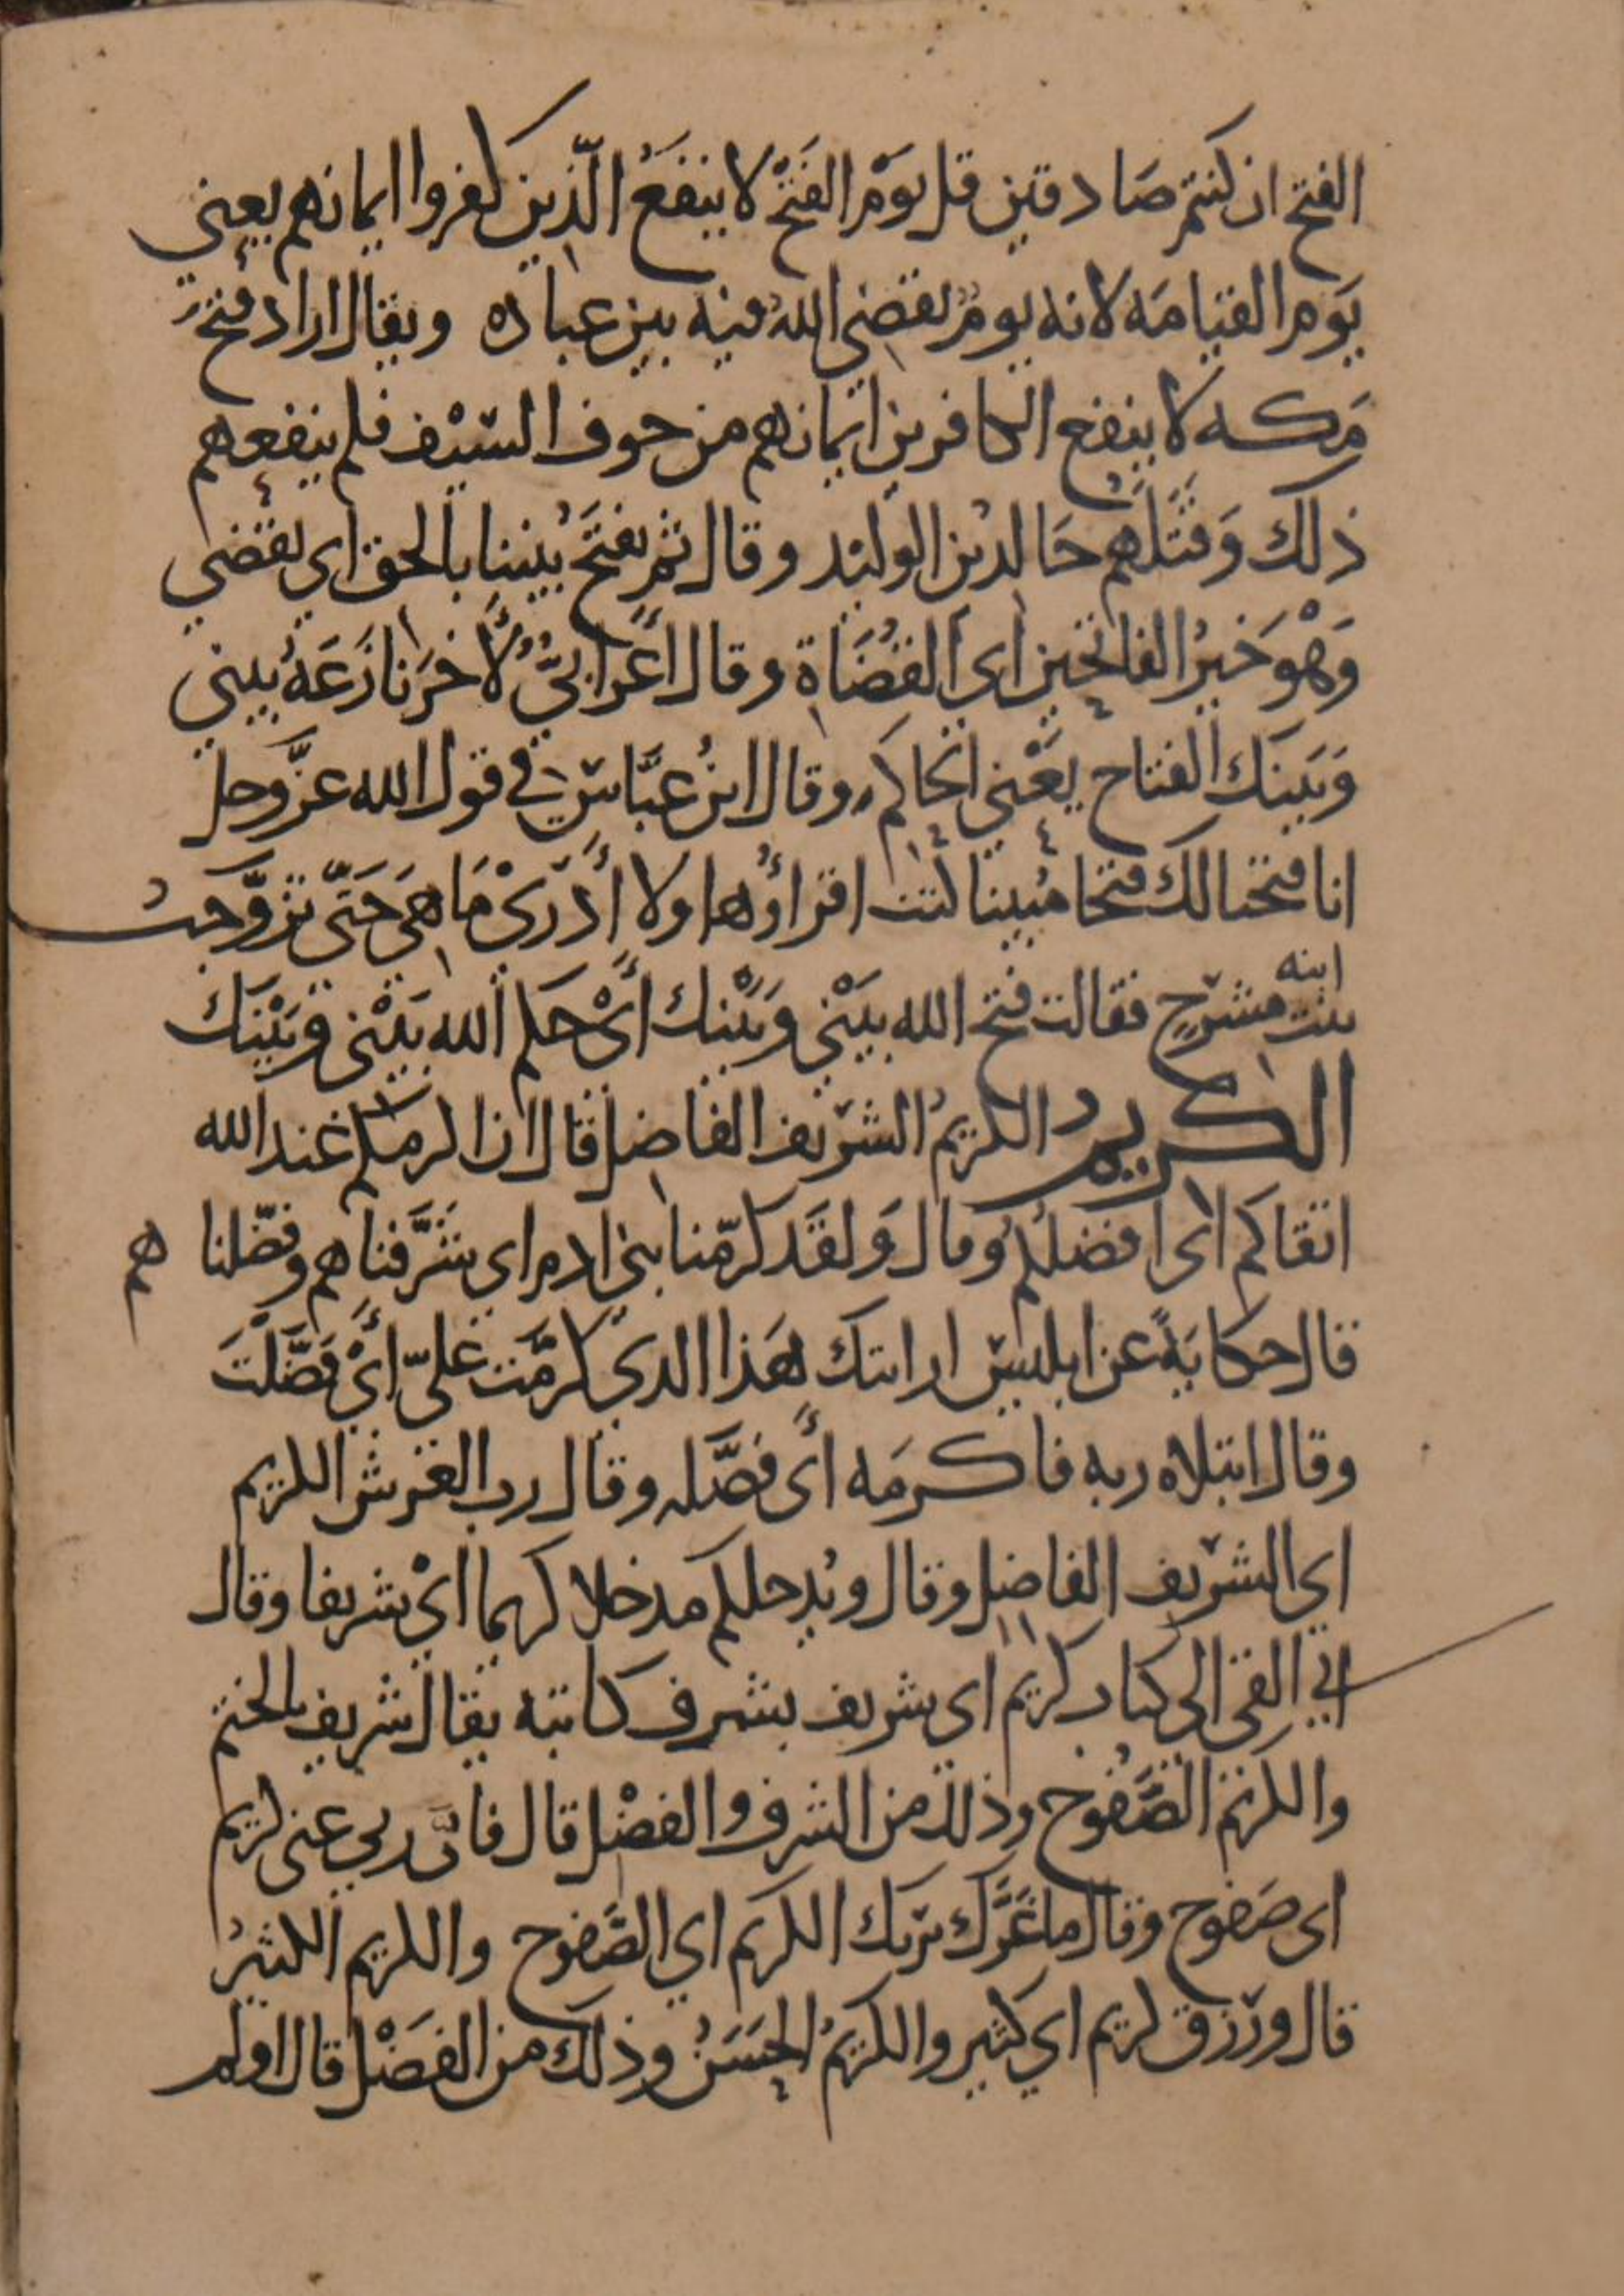 الفتح ان كنتم صادقين قل يَوْم الفَتْح لا ينفَعُ الّذين كفروا ايمانهم يعني
يَوم القيامَة لانه يومٌ يقضي اللهُ فيه بين عباده ويقال اراد فتح
مَكه لا ينفع الكافرين ايمانهم من خوف السّيْف فلم ينفعهم
ذلك وَقتَلَهم خَالد بن الوليد وقال ثم يفتَحُ بيننا بالحق اي يقضي
وَهْوَ خَيرُ الفاتحين اي القُضَاة وقال أعرابيٌّ لأخرَ نازعَهُ بيني
وَبَينَك الفتاح يَعْني الحاكم وقال ابنُ عبَّاسٍ في قول الله عزَّ وجل
انا فتحنا لك فتحا مُبينا كنت اقرأُوها ولا أَدْرِيْ مَا هِيَ حَتّى تزوَّجتُ
بنت ابنه مشرحٍ فقالت فتح الله بيَنْي وَبَيْنك أَيْ حَكم الله بَيْني وَبَيْنَك
الكريم الكريمُ الشريف الفاضل قال ان اكرمكم عند الله
اتقاكم اي افضلكم وقال وَلقَد كرّمنا بني ادم اي شَرَّفناهم وفضّلناهم
قال حكايَةً عن ابليس ارايتك هَذا الذي كرمَّت عليّ أَيْ فَضَّلْتَ
وقال ابتلاه ربه فاكرمَه أي فضَّله وقال رب العرش الكريم
اي الشريف الفاضل وقال ونُدخلكم مدخلا كريما أيْ شريفا وقال
اني القي الي كتاب كريم اي شريف بشرف كاتبه يقال شريف بالختم
والكريم الصَّفُوح وذلك من الشرف والفضْل قال فانَّ ربي غني كريم
اي صَفوح وقال ما غَرَّك بربك الكريم اي الصَّفوح والكريم الكثيرُ
قال ورزق كريم اي كثير والكريمُ الحَسَنُ وذلك من الفَضْل قال اولم